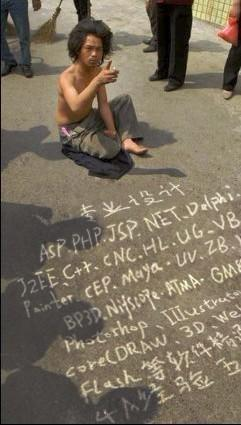 专业设计
ASP.PHP.JSP.NET.Delphi
J2EE.C++.CNC.HL.UG-VB
Painter.CEP.Maya UV.ZB.
BP3D.Nifslope.ATMA.GMB
Photoshop、Illustrator
corelDRAW、3D.We
Flash 等软件精